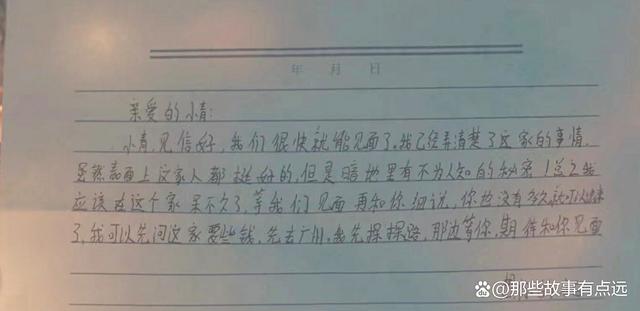 年 月 日
亲爱的小青:
小青见信好,我们很快就能见面了。我已经弄清楚了这家的事情,
虽然表面上这家人都挺好的,但是暗地里有不为人知的秘密,总之我
应该在这个家呆不久了,等我们见面再和你细说,你应没有多久就可以出来
了,我可以先问这家要些钱,先去广州,我先探探路,那边等你,期待和你见面
@那些故事有点远